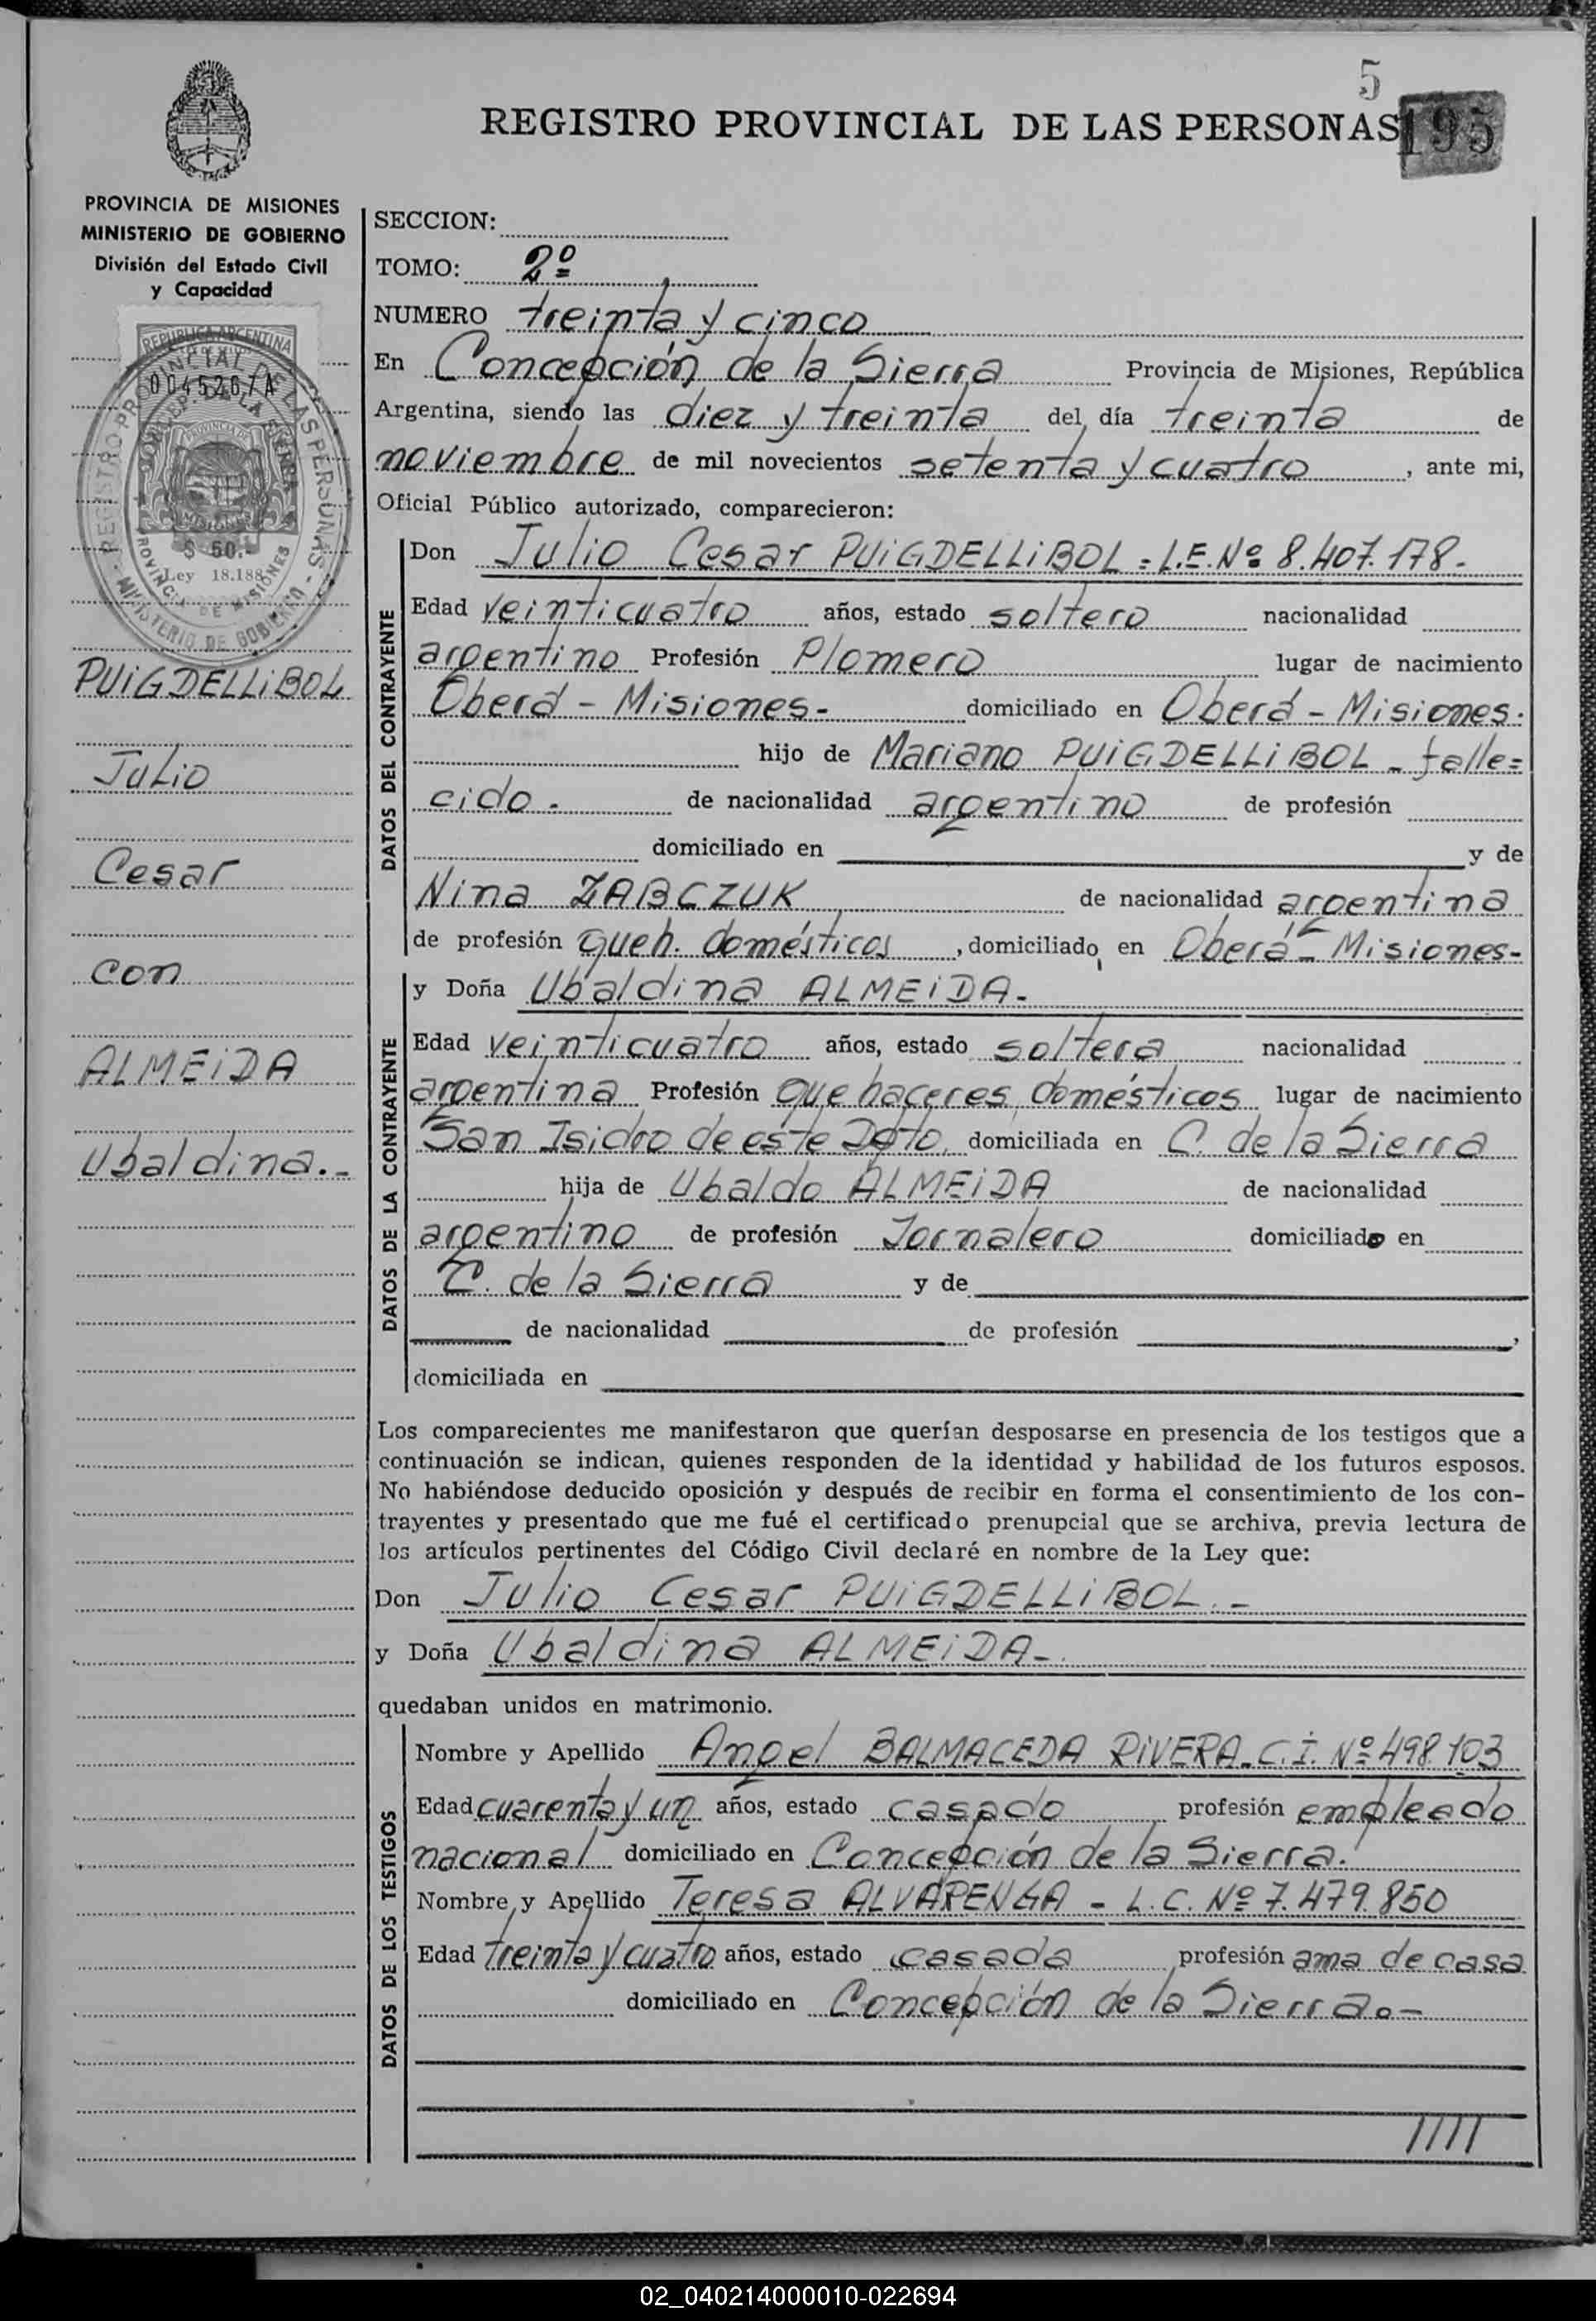 5
REGISTRO PROVINCIAL DE LAS PERSONAS 195
PROVINCIA DE MISIONES
MINISTERIO DE GOBIERNO
División del Estado Civil
y Capacidad
REPUBLICA ARGENTINA
0045267A
PROVINCIA DE
MISIONES
$ 50.-
Ley 18.188
REGISTRO PROVINCIAL DE LAS PERSONAS - MINISTERIO DE GOBIERNO
CONCEP. DE LA SIERRA
PROVINCIA DE MISIONES
PUiGDELLiBOL
Julio
Cesar
con
ALMEiDA
Ubaldina.-
SECCION:
TOMO: 2º
NUMERO treinta y cinco
En Concepción de la Sierra Provincia de Misiones, República
Argentina, siendo las diez y treinta del día treinta de
noviembre de mil novecientos setenta y cuatro, ante mi,
Oficial Público autorizado, comparecieron:
DATOS DEL CONTRAYENTE
Don Julio Cesar PUiGDELLiBOL = L.E. Nº 8.407.178.-
Edad veinticuatro años, estado soltero nacionalidad
argentino Profesión Plomero lugar de nacimiento
Oberá - Misiones.- domiciliado en Oberá - Misiones.
hijo de Mariano PUiGDELLiBOL - falle=
cido.- de nacionalidad argentino de profesión
domiciliado en y de
Nina ZABCZUK de nacionalidad argentina
de profesión queh. domésticos, domiciliado en Oberá - Misiones-
DATOS DE LA CONTRAYENTE
y Doña Ubaldina ALMEiDA.-
Edad veinticuatro años, estado soltera nacionalidad
argentina Profesión quehaceres domésticos lugar de nacimiento
San Isidro de este Dpto. domiciliada en C. de la Sierra
hija de Ubaldo ALMEiDA de nacionalidad
argentino de profesión Jornalero domiciliado en
C. de la Sierra y de
de nacionalidad de profesión ,
domiciliada en
Los comparecientes me manifestaron que querían desposarse en presencia de los testigos que a
continuación se indican, quienes responden de la identidad y habilidad de los futuros esposos.
No habiéndose deducido oposición y después de recibir en forma el consentimiento de los con-
trayentes y presentado que me fué el certificado prenupcial que se archiva, previa lectura de
los artículos pertinentes del Código Civil declaré en nombre de la Ley que:
Don Julio Cesar PUiGDELLiBOL.-
y Doña Ubaldina ALMEiDA-.
quedaban unidos en matrimonio.
DATOS DE LOS TESTIGOS
Nombre y Apellido Angel BALMACEDA RiVERA-C.I. Nº 498.103
Edad cuarenta y un años, estado casado profesión empleado
nacional domiciliado en Concepción de la Sierra.
Nombre y Apellido Teresa ALVARENGA - L.C. Nº 7.479.850
Edad treinta y cuatro años, estado casada profesión ama de casa
domiciliado en Concepción de la Sierra.-
////
02_040214000010-022694